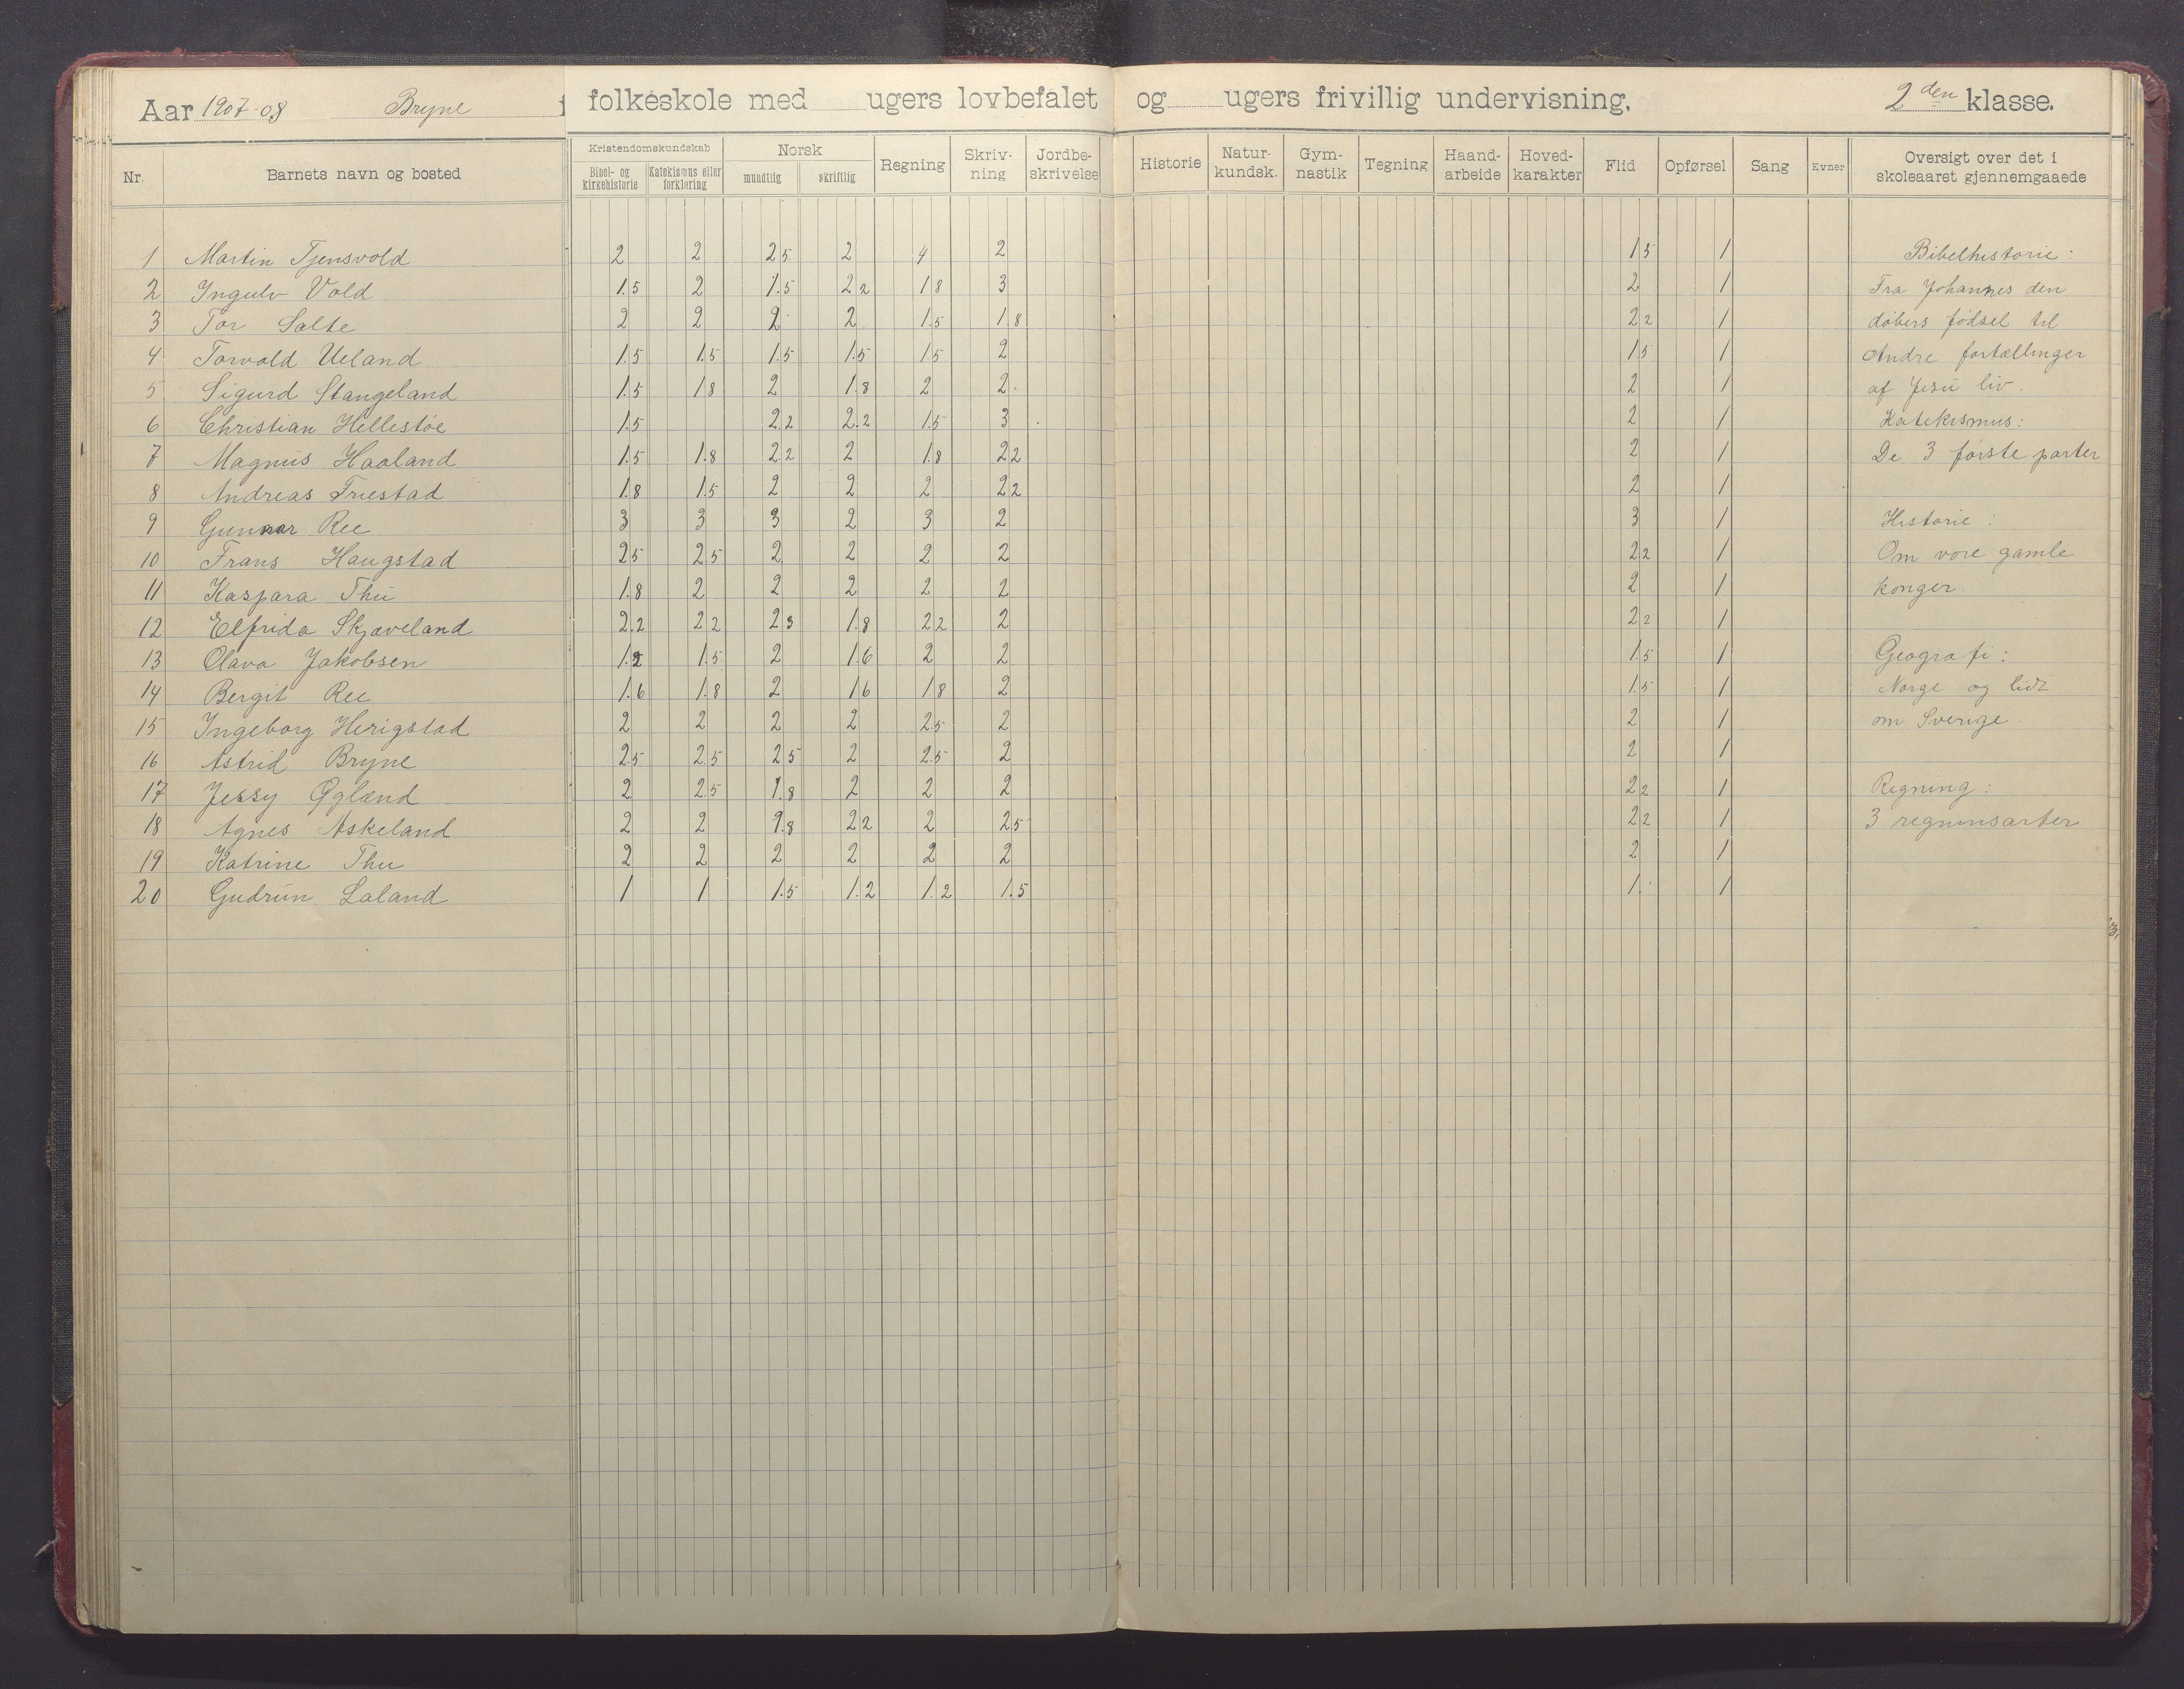 Aar 1907-08 Bryne folkeskole med ugers lovbefalet og ugers frivillig undervisning, 2den klasse.
Nr. Barnets navn og bosted Kristendomskundskab Bibel- og kirkehistorie Katekismus eller forklaring Norsk mundtlig skriftlig Regning Skriv-ning Jordbe-skrivelse Historie Natur-kundsk. Gym-nastik Tegning Haand-arbeide Hoved-karakter Flid Opførsel Sang Evner Oversigt over det i skoleaaret gjennemgaaede
1 Martin Tjensvold 2 2 2 5 2 4 2 1 5 1 Bibelhistorie:
2 Ingulv Vold 1.5 2 1.5 2 2 1 8 3 2 1 Fra Johannes den
3 Tor Salte 2 2 2 2 1.5 1.8 2 2 1 døbers fødsel til
4 Torvald Ueland 1.5 1.5 1.5 1.5 1 5 2 1.5 1 Andre fortællinger
5 Sigurd Stangeland 1.5 1 8 2 1.8 2 2 2 1 af Jesu liv.
6 Christian Hellestøe 1.5 2.2 2.2 1.5 3 2 1 Katekismus:
7 Magnus Haaland 1.5 1.8 2 2 2 1.8 2 2 2 1 De 3 første parter
8 Andreas Friestad 1.8 1.5 2 2 2 2 2 2 1
9 Gunnar Ree 3 3 3 2 3 2 3 1 Historie:
10 Frans Haugstad 2 5 2 5 2 2 2 2 2 2 1 Om vore gamle
11 Kaspara Thu 1.8 2 2 2 2 2 2 1 konger.
12 Elfrida Skjæveland 2.2 2 2 2 3 1.8 2 2 2 2 2 1
13 Olava Jakobsen 1.2 1.5 2 1 6 2 2 1.5 1 Geografi:
14 Bergit Ree 1.6 1.8 2 1 6 1 8 2 1.5 1 Norge og lidt
15 Ingeborg Herigstad 2 2 2 2 2.5 2 2 1 om Sverige.
16 Astrid Bryne 2.5 2.5 2 5 2 2.5 2 2 1
17 Jessy Øglænd 2 2.5 1.8 2 2 2 2 2 1 Regning:
18 Agnes Askeland 2 2 1.8 2 2 2 2 5 2 2 1 3 regningsarter
19 Katrine Thu 2 2 2 2 2 2 2 1
20 Gudrun Laland 1 1 1.5 1.2 1.2 1.5 1. 1